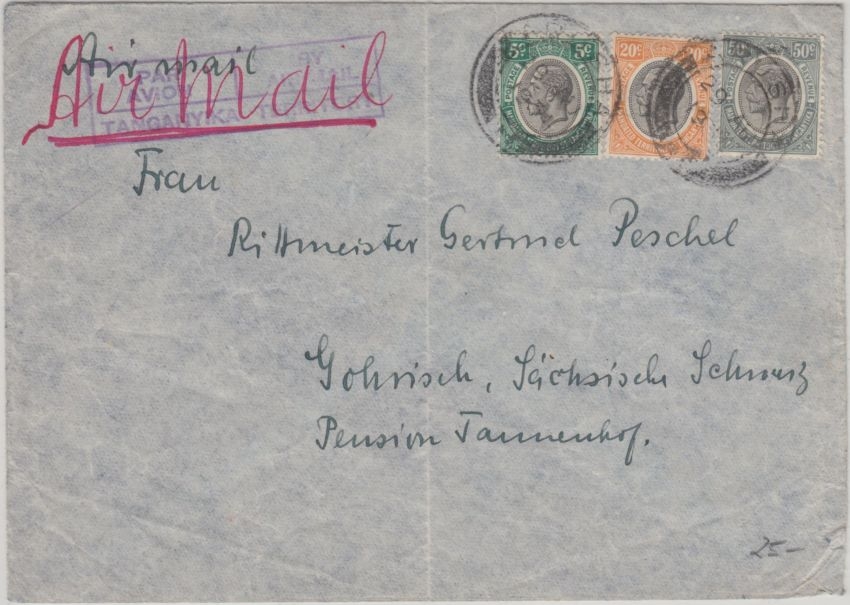 Air mail
Air Mail
PAR BY
AVION AIR MAIL
TANGANYIKA
5c 5c
POSTAGE REVENUE
20c 20c
50c 50c
POSTAGE REVENUE
Frau
Rittmeister Gertrud Peschel
Gohrisch, Sächsische Schweiz
Pension Tannenhof.
25-